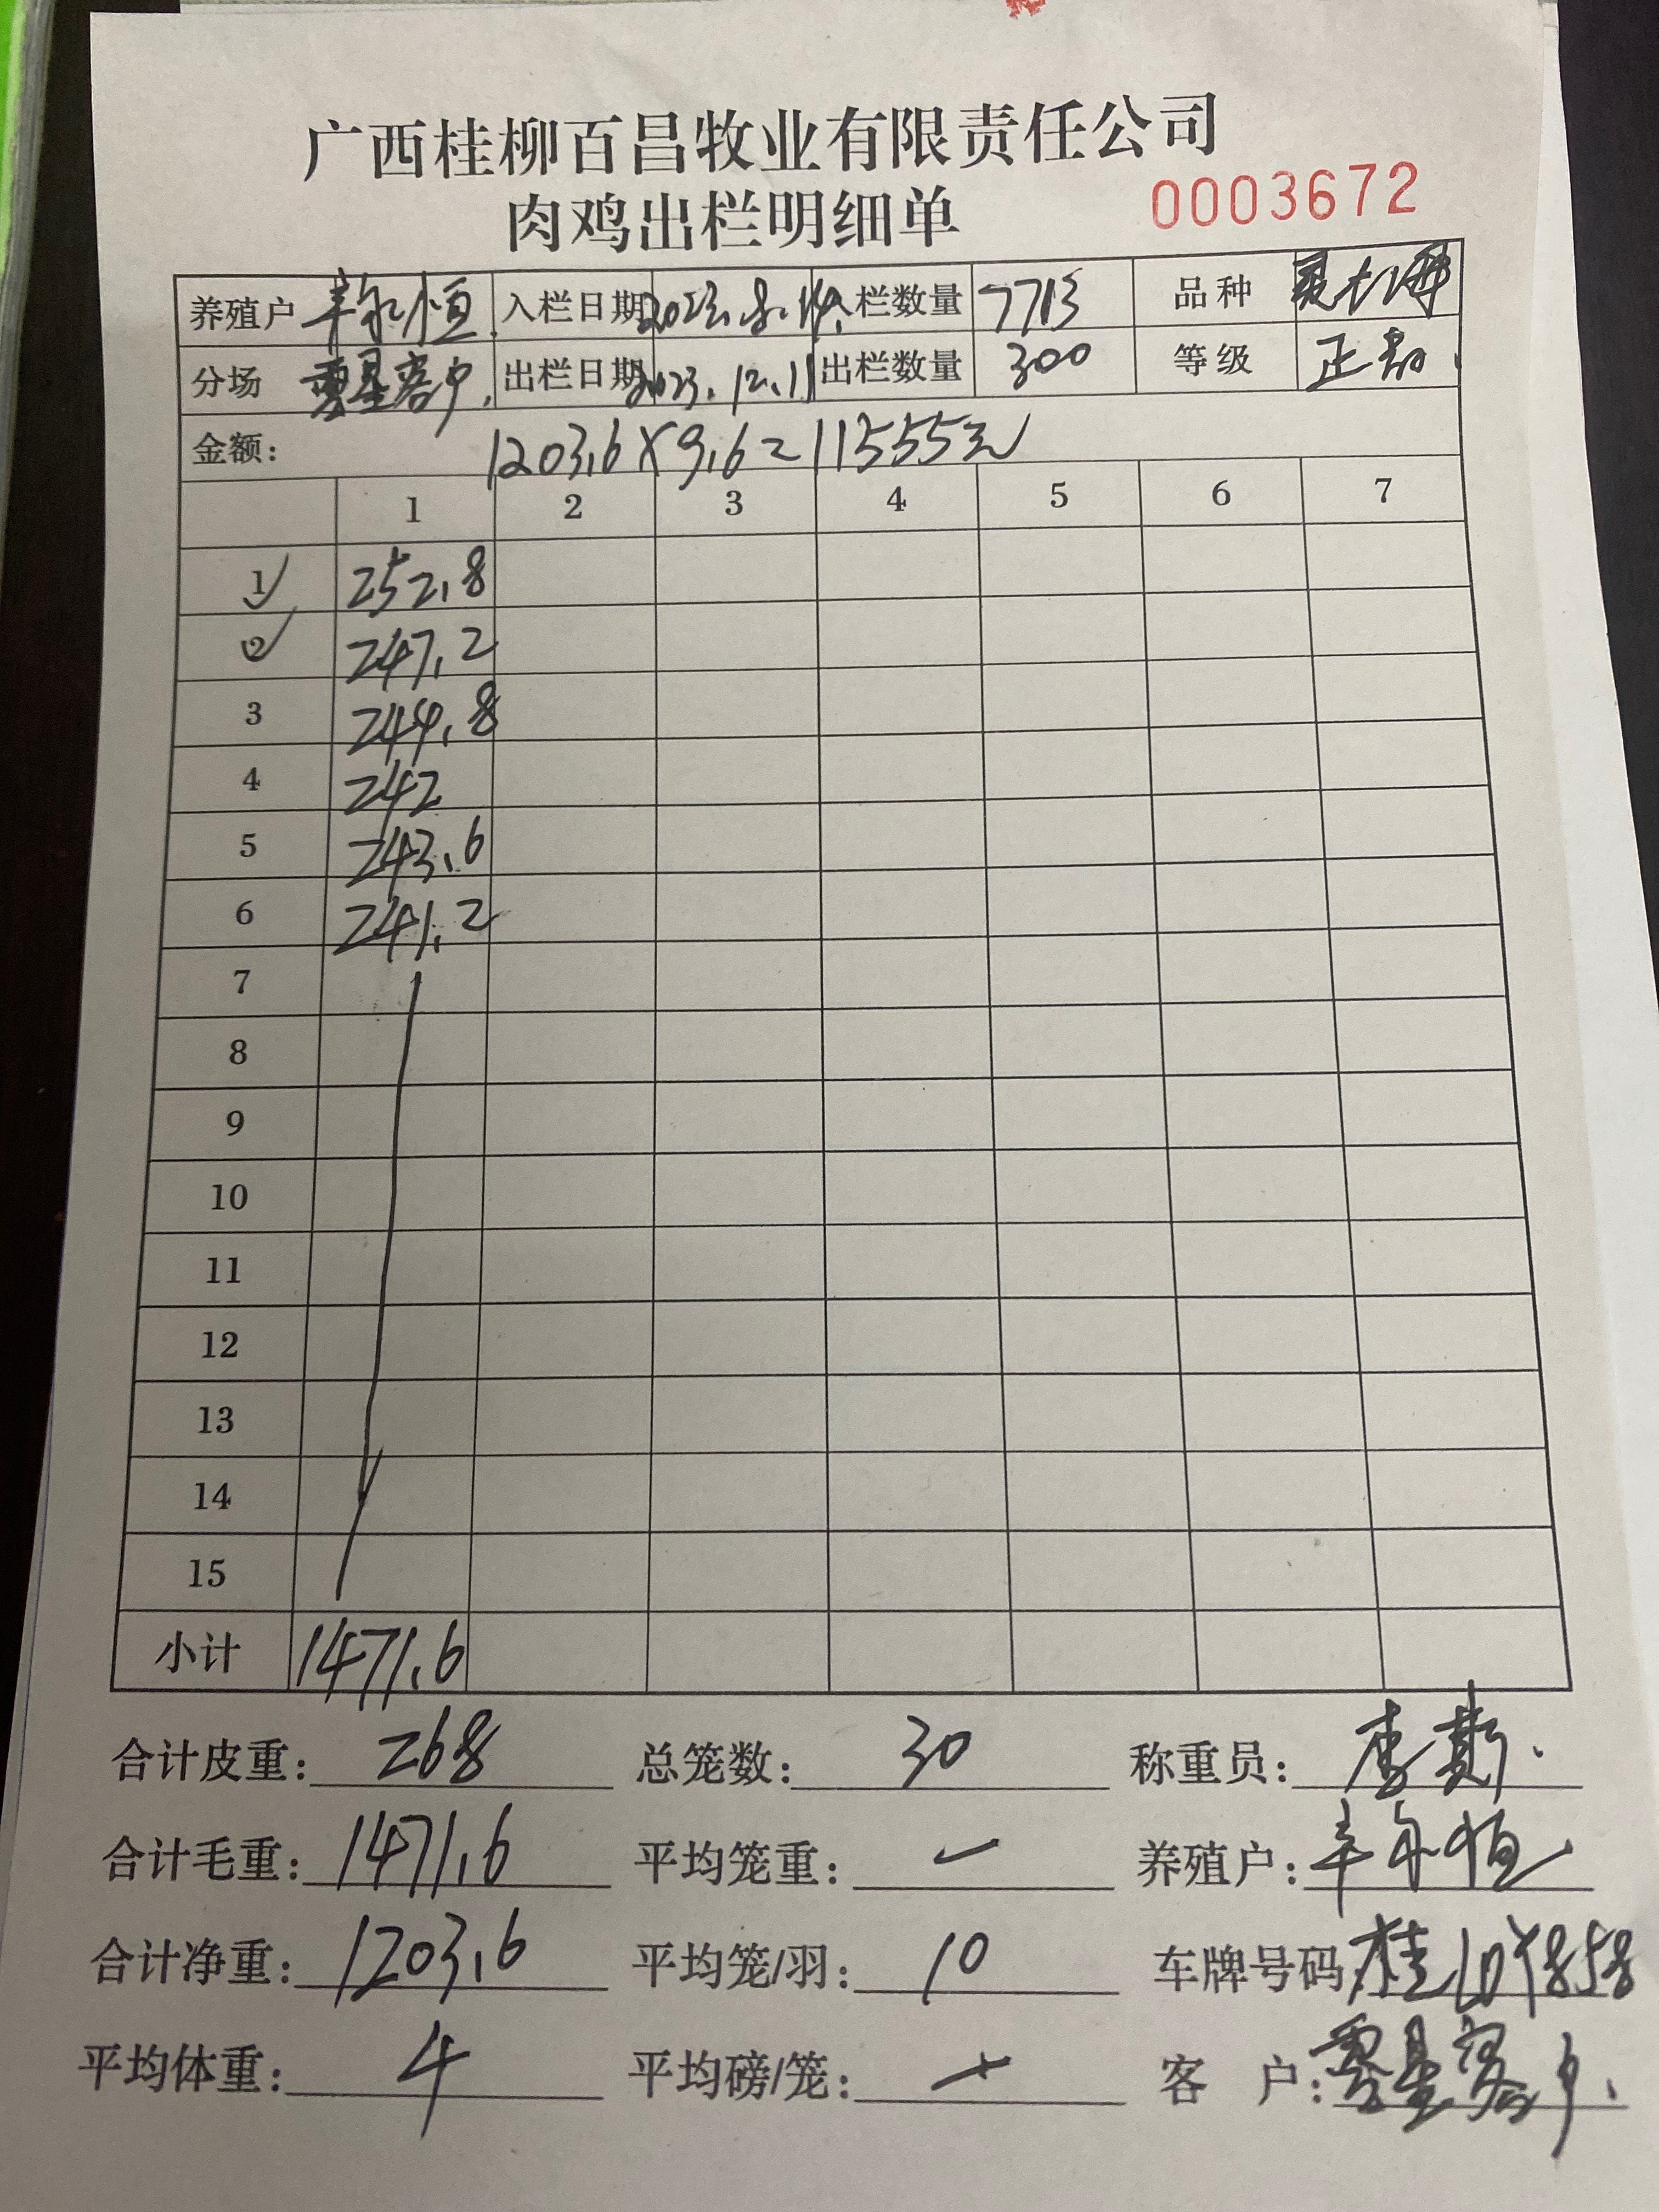 广西桂柳百昌牧业有限责任公司
肉鸡出栏明细单 0003672
养殖户 入栏日期 2023.8.14 入栏数量 7713 品种
分场 零星客户. 出栏日期 2023.12.11 出栏数量 300 等级 正
金额: 1203.6×9.6=11555元
1 2 3 4 5 6 7
1 252.8
2 247.2
3 244.8
4 242
5 243.6
6 241.2
7
8
9
10
11
12
13
14
15
小计 1471.6
合计皮重: 268 总笼数: 30 称重员: 李
合计毛重: 1471.6 平均笼重: 养殖户:
合计净重: 1203.6 平均笼/羽: 10 车牌号码 桂
平均体重: 4 平均磅/笼: 客 户: 零星客户.